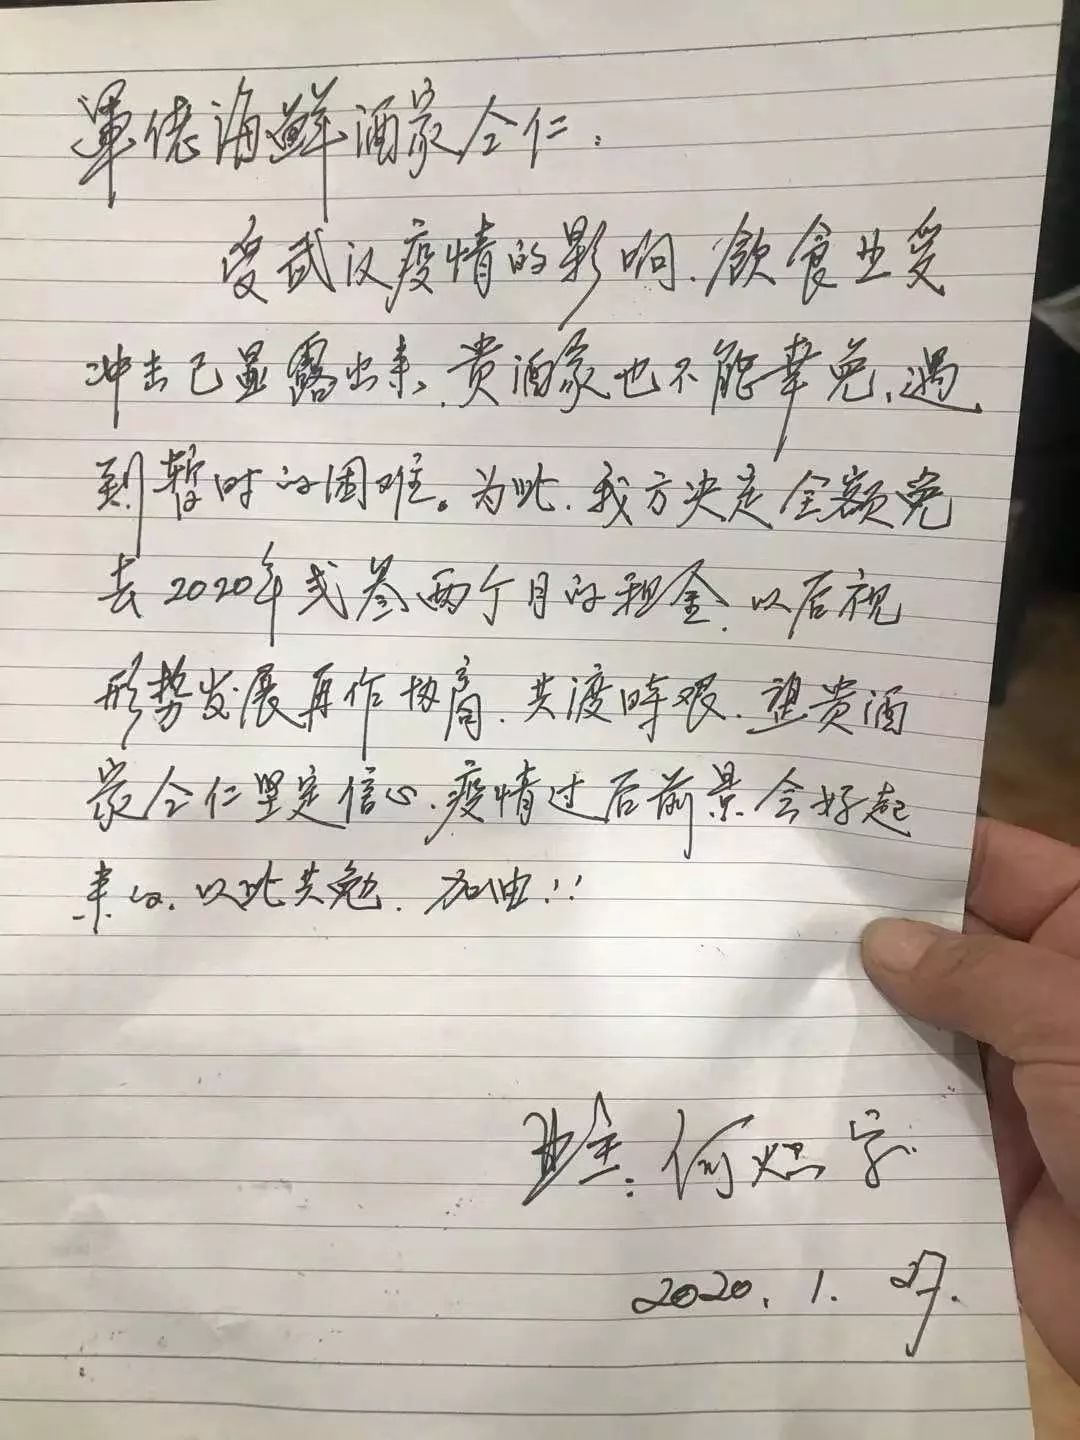 军佬海鲜酒家仝仁：
受武汉疫情的影响，飲食业受
冲击已显露出来，贵酒家也不能幸免，遇
到暂时的困难。为此，我方决定全额免
去2020年弍叁两个月的租金，以后视
形势发展再作协商，共渡時艰，望贵酒
家仝仁坚定信心，疫情过后前景会好起
来的，以此共勉，加油！！
业主：何字
2020.1.27.